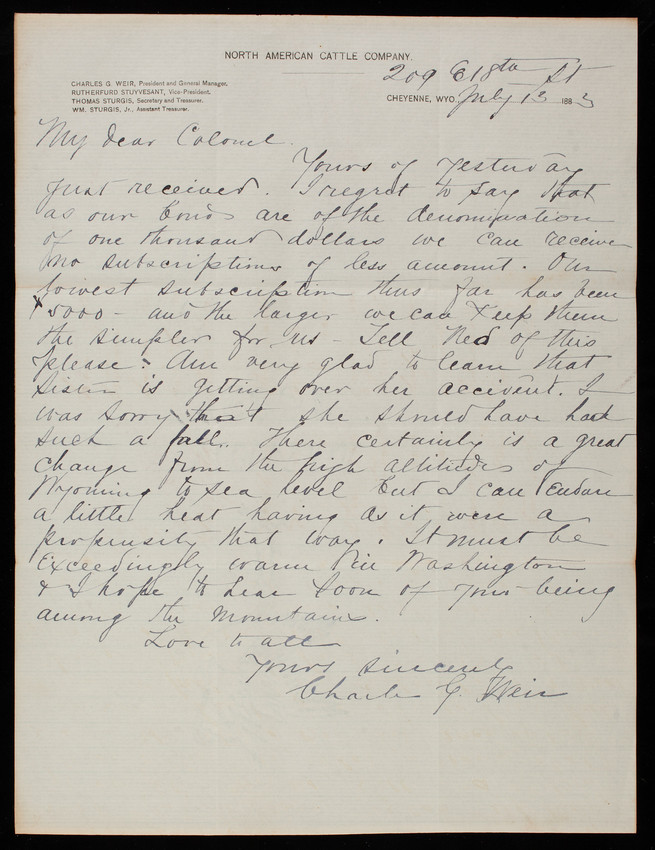 NORTH AMERICAN CATTLE COMPANY.
209 E 18th St
CHARLES G. WEIR, President and General Manager.
RUTHERFURD STUYVESANT, Vice-President.
THOMAS STURGIS, Secretary and Treasurer.
WM. STURGIS, Jr., Assistant Treasurer.
CHEYENNE, WYO. July 13 1883
My dear Colonel.
Yours of yesterday
just received. I regret to say that
as our bonds are of the denomination
of one thousand dollars we can receive
no subscriptions of less amount. Our
lowest subscription thus far has been
$5000 - and the larger we can keep them
the simpler for us - Tell Ned of this
please. Am very glad to learn that
Sister is getting over her accident. I
was sorry that she should have had
such a fall. There certainly is a great
change from the high altitudes of
Wyoming to sea level but I can endure
a little heat having as it were a
propensity that way. It must be
exceedingly warm in Washington
& I hope to hear soon of your being
among the mountains.
Love to all
Yours sincerely
Charles G. Weir